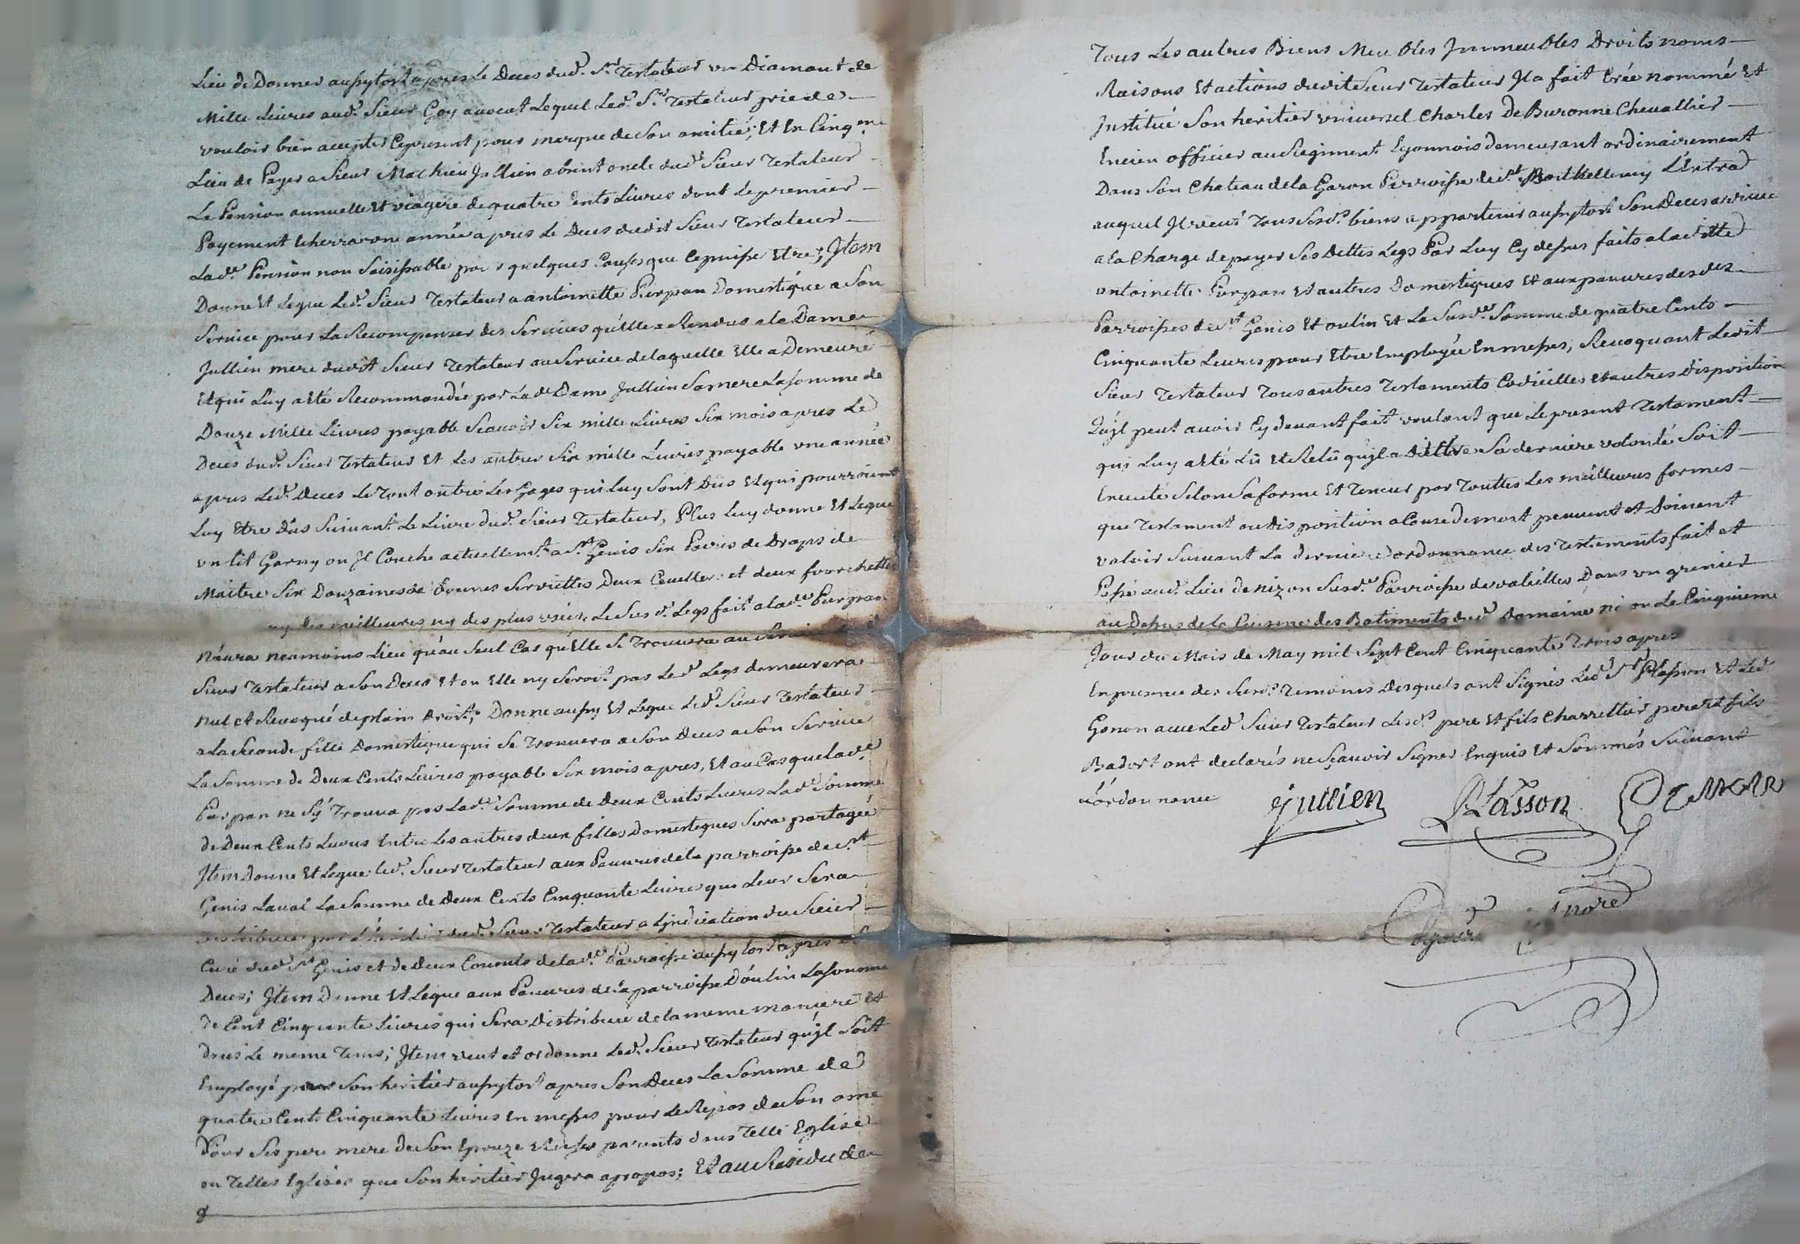 Lieu de Donner ausytost apres le Deces dud. Sr. Testateur un Diamant de
Mille Livres aud. Sieur Goy avocat Lequel Led. Sr. Testateur prie de
vouloir bien accepter Cepresent pour marque de Son amitié; Et En Cinqme
Lieu de Payer a Sieur Mathieu Jullien absint oncle dud. Sieur Testateur
La Pension annuelle Et viagere de quatre Cents Livres dont Le premier
Payement Echerra une année apres Le Deces dudit Sieur Testateur
Lade. Pension non Saisissable pour quelques Causes que Cepuisse Etre; Jtem
Donne Et Legue Led. Sieur Testateur a antoinette Purpan Domestique a Son
Service pour La Recompenser des Services qu'Elle a Rendus a la Dame
Jullien mere dudit Sieur Testateur au Service de laquelle Elle a Demeuré
Et qui Luy a Eté Recommandée par Lade. Dame Jullien Sa mere La Somme de
Douze Mille Livres payable Scavoir Six mille Livres Six mois apres Le
Deces dud. Sieur Testateur Et Les autres Six mille Livres payable une année
apres Led. Deces Le Tout outre Les Gages qui Luy Sont Dûs Et qui pourroient
Luy Etre dûs Suivant Le Livre dud. Sieur Testateur, Plus Luy donne Et Legue
un lit Garny ou Jl Couche actuellemt. a St. Genis Six Paires de Draps de
Maitre Six Douzaines de bonnes Serviettes Deux Cueilleres et deux fourchettes
ny des meilleures ny des plus usées, Le Susd. Legs fait a lade. Purpan
N'aura neamoins Lieu qu'au Seul Cas qu'Elle Se Trouvera au Service
Sieur Testateur a Son Deces Et ou Elle ny Seroit pas Led. Legs demeurera
nul et Revoqué de plain Droit; Donne aussy Et Legue Led. Sieur Testateur
a La Seconde fille Domestique qui Se Trouvera a Son Deces a Son Service
La Somme de Deux Cents Livres payable Six mois apres, Et au Cas que lade.
Purpan ne S'y Trouva pas Lade. Somme de Deux Cents Livres Lade. Somme
de Deux Cents Livres Entre Les autres deux filles Domestiques Sera partagée
Jtem Donne Et Legue led. Sieur Testateur aux Pauvres de la parroisse de St.
Genis Laval La Somme de Deux Cents Cinquante Livres qui Leur Sera
distribuée par L'heritier dud. Sieur Testateur a L'jndication du Sieur
Curé dud. St. Genis et de Deux de lade. Parroisse ausytost apres Son
Deces; Jtem Donne Et Legue aux Pauvres de la parroisse D'oulin La Somme
de Cent Cinquante Livres qui Sera Distribuée de la meme maniere Et
dans Le meme Tems; Jtem veut et ordonne Led. Sieur Testateur qu'jl Soit
Employé par Son heritier ausytost apres Son Deces La Somme de
quatre Cents Cinquante Livres En messes pour Le Repos de Son ame
Pour Ses pere mere de Son Epouze Et de Ses parents dans Telle Eglise
ou Telles Eglises que Son heritier Jugera apropos; Et au Residu de
Tous Les autres Biens Meubles Jmmeubles Droits noms
Raisons Et actions dudit Sieur Testateur Jl a fait Crée nommé Et
Jnstitué Son heritier universel Charles De Buronne Chevallier
Encien officier au Regiment Lyonnois demeurant ordinairement
Dans Son Chateau de la Garon Parroisse de St. Barthellemy Lestra
auquel Jl veut Tous Sesd. biens appartenir ausytost Son Deces arrivée
a la Charge de payer Ses Dettes Legs Par Luy Cy dessus faits a ladite
antoinette Purpan Et autres Domestiques Et aux pauvres desdes.
Parroisses de St. Genis Et oulin Et La Susde. Somme de quatre Cents
Cinquante Livres pour Etre Employée En messes, Revoquant Ledit
Sieur Testateur Tous autres Testaments Codicilles Et autres Disposition
Qu'jl peut avoir Cy devant fait voulant que Le present Testament
qui Luy a Eté Lû Et Relû qu'jl a dit Etre Sa derniere volonté Soit
Executé Selon Sa forme Et Teneur par Touttes Les meilleures formes
que Testament ou disposition a Cause de mort peuvent et Doivent
valoir Suivant La derniere ordonnance des Testements fait et
Passé aud. Lieu de nizon Susd. Parroisse de valeilles Dans un grenier
au Dehus de la Cuisine des Batiments dud. Domaine Le Cinquieme
Jour du Mois de May mil Sept Cent Cinquante Trois apres
En presence des Susd. Temoins Desquels ont Signés Led. Sr. Plasson Et Led.
Gonon avec Led. Sieur Testateur Lesds. pere Et fils Charrettier pere et fils
Badort. ont declarés ne Scavoir Signer Enquis Et Sommés Suivant
L'ordonnance Jullien Plasson